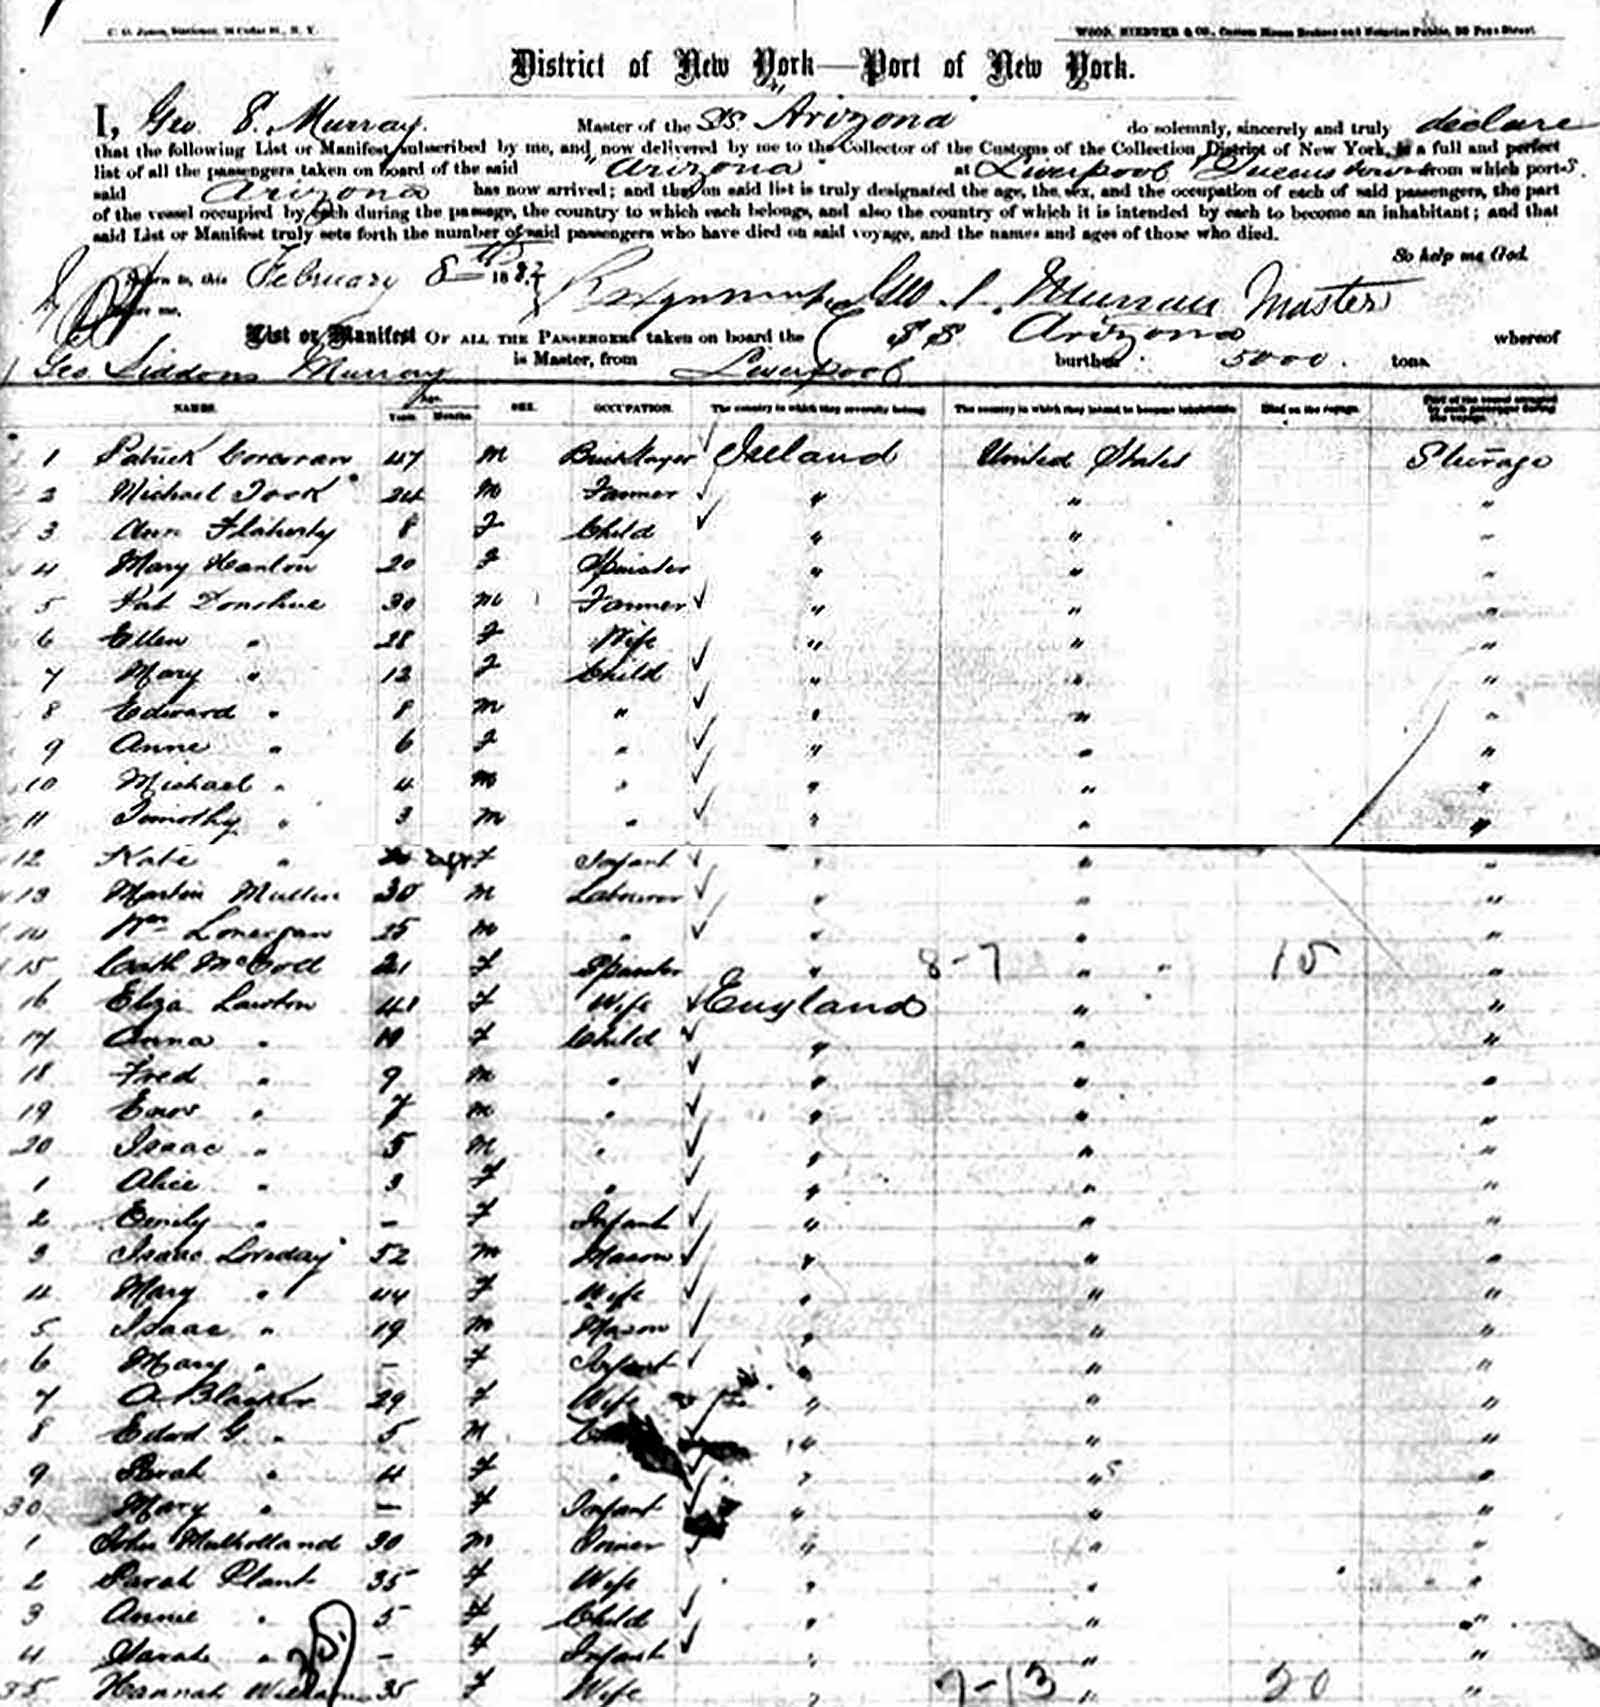 C. G. Jones, Stationer, Cedar St., N. Y.
WOOD, & CO., Custom House Brokers and Notaries Public, Pine Street
District of New York—Port of New York.
I, Geo. S. Murray. Master of the SS. "Arizona" do solemnly, sincerely and truly declare
that the following List or Manifest, subscribed by me, and now delivered by me to the Collector of the Customs of the Collection District of New York, is a full and perfect
list of all the passengers taken on board of the said "Arizona" at Liverpool Queenstown from which ports
said Arizona has now arrived; and that on said list is truly designated the age, the sex, and the occupation of each of said passengers, the part
of the vessel occupied by each during the passage, the country to which each belongs, and also the country of which it is intended by each to become an inhabitant; and that
said List or Manifest truly sets forth the number of said passengers who have died on said voyage, and the names and ages of those who died.
So help me God.
Sworn to, this February 8th 1882 Geo. S. Murray Master
before me,
List or Manifest OF ALL THE PASSENGERS taken on board the SS Arizona whereof
Geo. Siddons Murray is Master, from Liverpool burthen 5000. tons.
NAMES. Age. Years. Months. SEX. OCCUPATION. The country to which they severally belong. The country in which they intend to become inhabitants. Died on the voyage. Part of the vessel occupied by each passenger during the voyage.
1 Patrick Corcoran 47 M Bricklayer Ireland United States Steerage
2 Michael 24 M Farmer " " "
3 Ann Flaherty 8 F Child " " "
4 Mary Hanlon 20 F Spinster " " "
5 Pat Donohue 30 M Farmer " " "
6 Ellen " 28 F Wife " " "
7 Mary " 12 F Child " " "
8 Edward " 8 M " " " "
9 Anne " 6 F " " " "
10 Michael " 4 M " " " "
11 Timothy " 3 M " " " "
12 Kate " F Infant " " "
13 Martin Mullin 30 M Labourer " " "
14 Wm Lonergan 25 M " " " "
15 Cath McColl 21 F Spinster " 8-7 " 15 "
16 Eliza Lawton 41 F Wife England " "
17 Anna " F Child " " "
18 Fred " 9 M " " " "
19 Enos " 7 M " " " "
20 Isaac " 5 M " " " "
1 Alice " 3 F " " " "
2 Emily " - F Infant " " "
3 Isaac Loveday 52 M Mason " " "
4 Mary " 44 F Wife " " "
5 Isaac " 19 M Mason " " "
6 Mary " - F Infant " " "
7 A. Blacker 29 F Wife " " "
8 Edwd G. " 5 M " " "
9 Sarah " 4 F " " " "
30 Mary " - F Infant " " "
1 John Mulholland 30 M Joiner " " "
2 Sarah Plant 35 F Wife " " "
3 Annie " 5 F Child " " "
4 Sarah " - F Infant " " "
35 Hannah 35 F Wife " 7-13 " 20 "